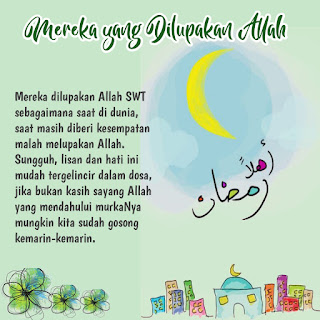 Mereka yang Dilupakan Allah
Mereka dilupakan Allah SWT
sebagaimana saat di dunia,
saat masih diberi kesempatan
malah melupakan Allah.
Sungguh, lisan dan hati ini
mudah tergelincir dalam dosa,
jika bukan kasih sayang Allah
yang mendahului murkaNya
mungkin kita sudah gosong
kemarin-kemarin.
أهلاً
رمضان